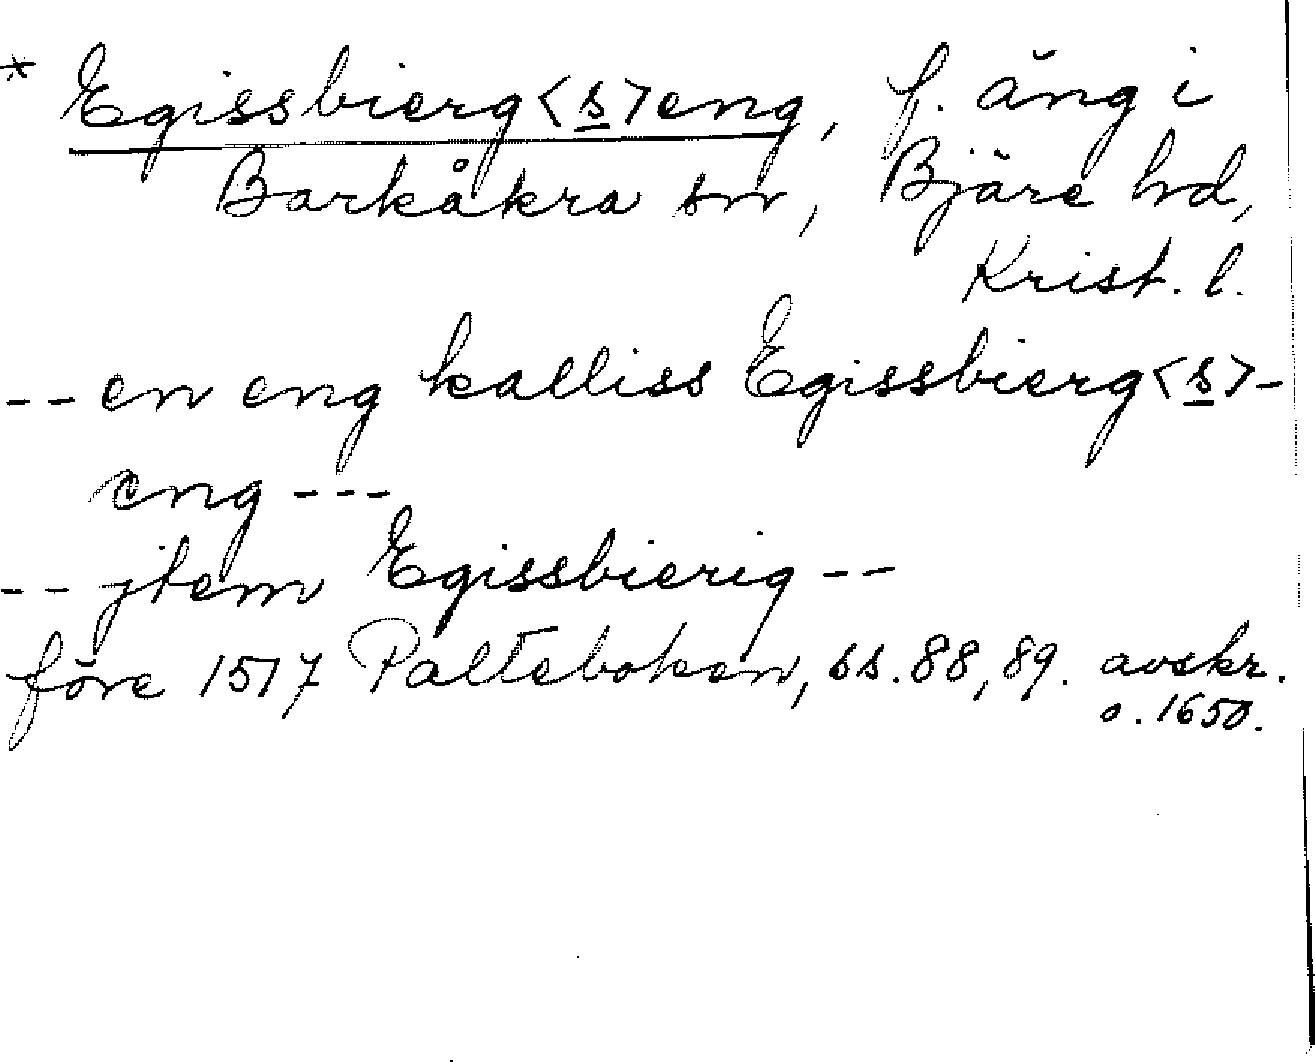 * Egissbierg<s>eng, f. äng i
Barkåkra sn, Bjäre hd,
Krist. l.
-- en eng kalliss Egissbierg<s>-
eng ---
-- jtem Egissbierig --
före 1517 Palteboken, ss. 88, 89. avskr.
o. 1650.